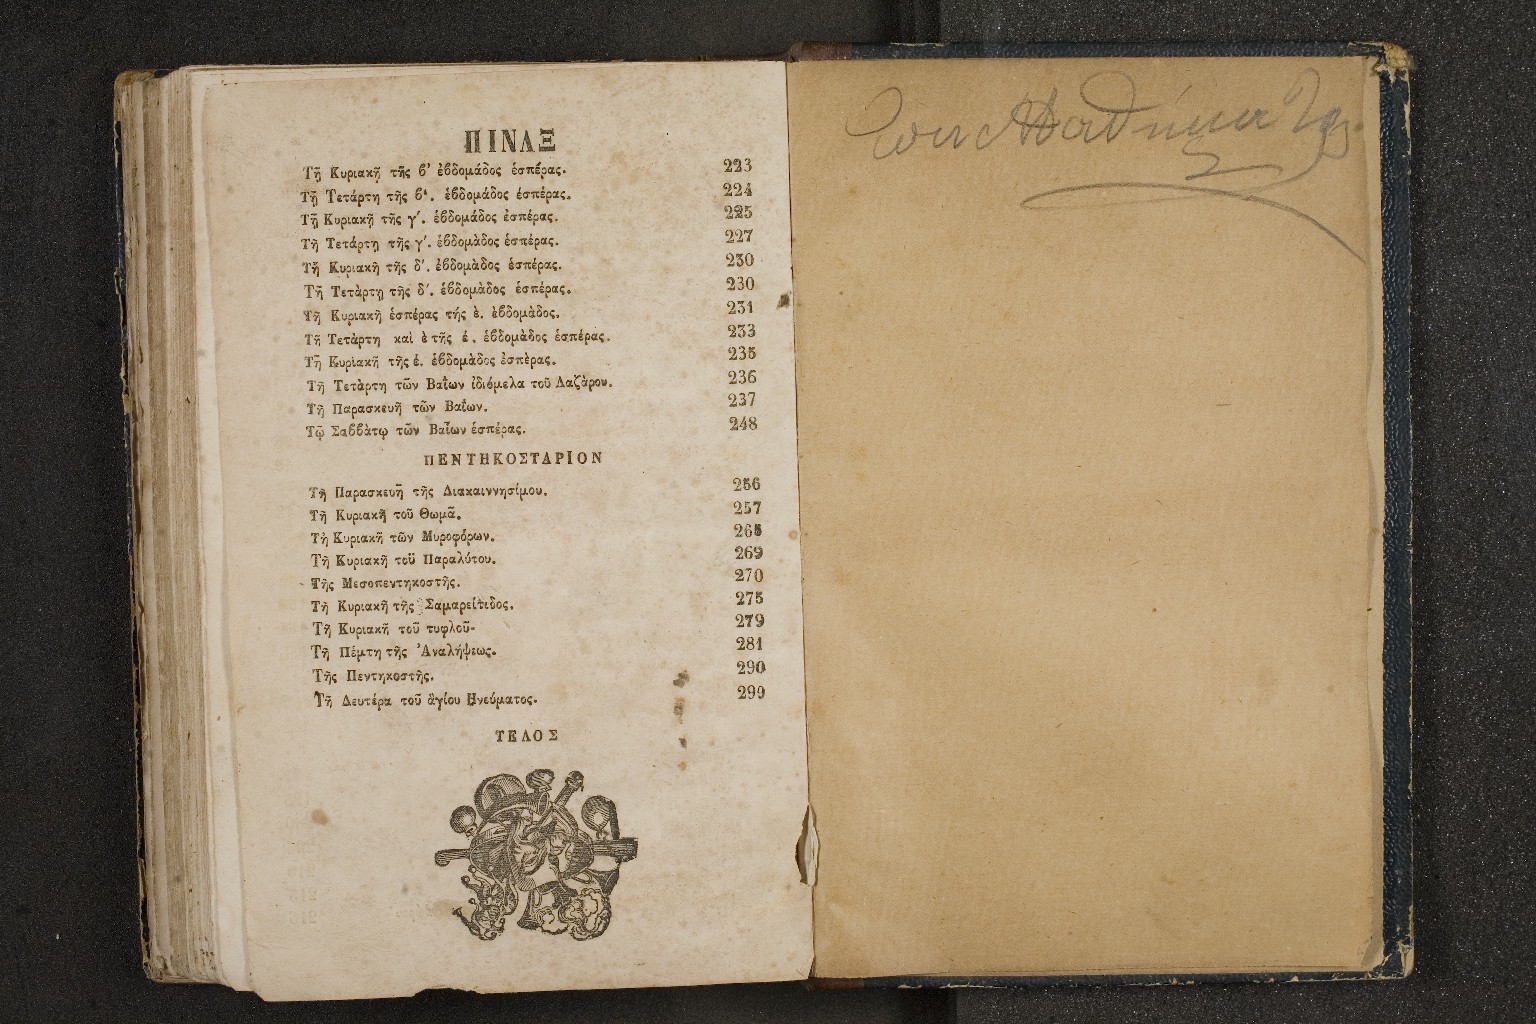 ΠΙΝΑΞ
Τῇ Κυριακῇ τῆς β' ἑβδομάδος ἑσπέρας. 223
Τῇ Τετάρτῃ τῆς β'. ἑβδομάδος ἑσπέρας. 224
Τῇ Κυριακῇ τῆς γ'. ἑβδομάδος ἑσπέρας. 225
Τῇ Τετάρτῃ τῆς γ'. ἑβδομὰδος ἑσπέρας. 227
Τῇ Κυριακῇ τῆς δ'. ἑβδομὰδος ἑσπέρας. 230
Τῇ Τετὰρτῃ τῆς δ'. ἑβδομὰδος ἑσπέρας. 230
Τῇ Κυριακῇ ἑσπέρας τής ὲ. ἑβδομὰδος. 231
Τῇ Τετὰρτη καὶ ὲ τῆς έ. ἑβδομὰδος ἑσπέρας. 233
Τῇ Κυριακῇ τῆς έ. ἑβδομὰδος ἑσπὲρας. 235
Τῇ Τετὰρτη τῶν Βαΐων ἰδιόμελα τοῦ Λαζὰρου. 236
Τῇ Παρασκευῇ τῶν Βαΐων. 237
Τῷ Σαββὰτῳ τῶν Βαΐων ἑσπέρας. 248
ΠΕΝΤΗΚΟΣΤΑΡΙΟΝ
Τῇ Παρασκευῇ τῆς Διακαιννησίμου. 256
Τῇ Κυριακῇ τοῦ Θωμᾶ. 257
Τῇ Κυριακῇ τῶν Μυροφόρων. 265
Τῇ Κυριακῇ τοῦ Παραλύτου. 269
Τῆς Μεσοπεντηκοστῆς. 270
Τῇ Κυριακῇ τῆς Σαμαρείτιδος. 275
Τῇ Κυριακῇ τοῦ τυφλοῦ- 279
Τῇ Πέμτη τῆς Ἀναλήψεως. 281
Τῆς Πεντηκοστῆς. 290
Τῇ Δευτέρα τοῦ ἁγίου Πνεύματος. 299
ΤΕΛΟΣ